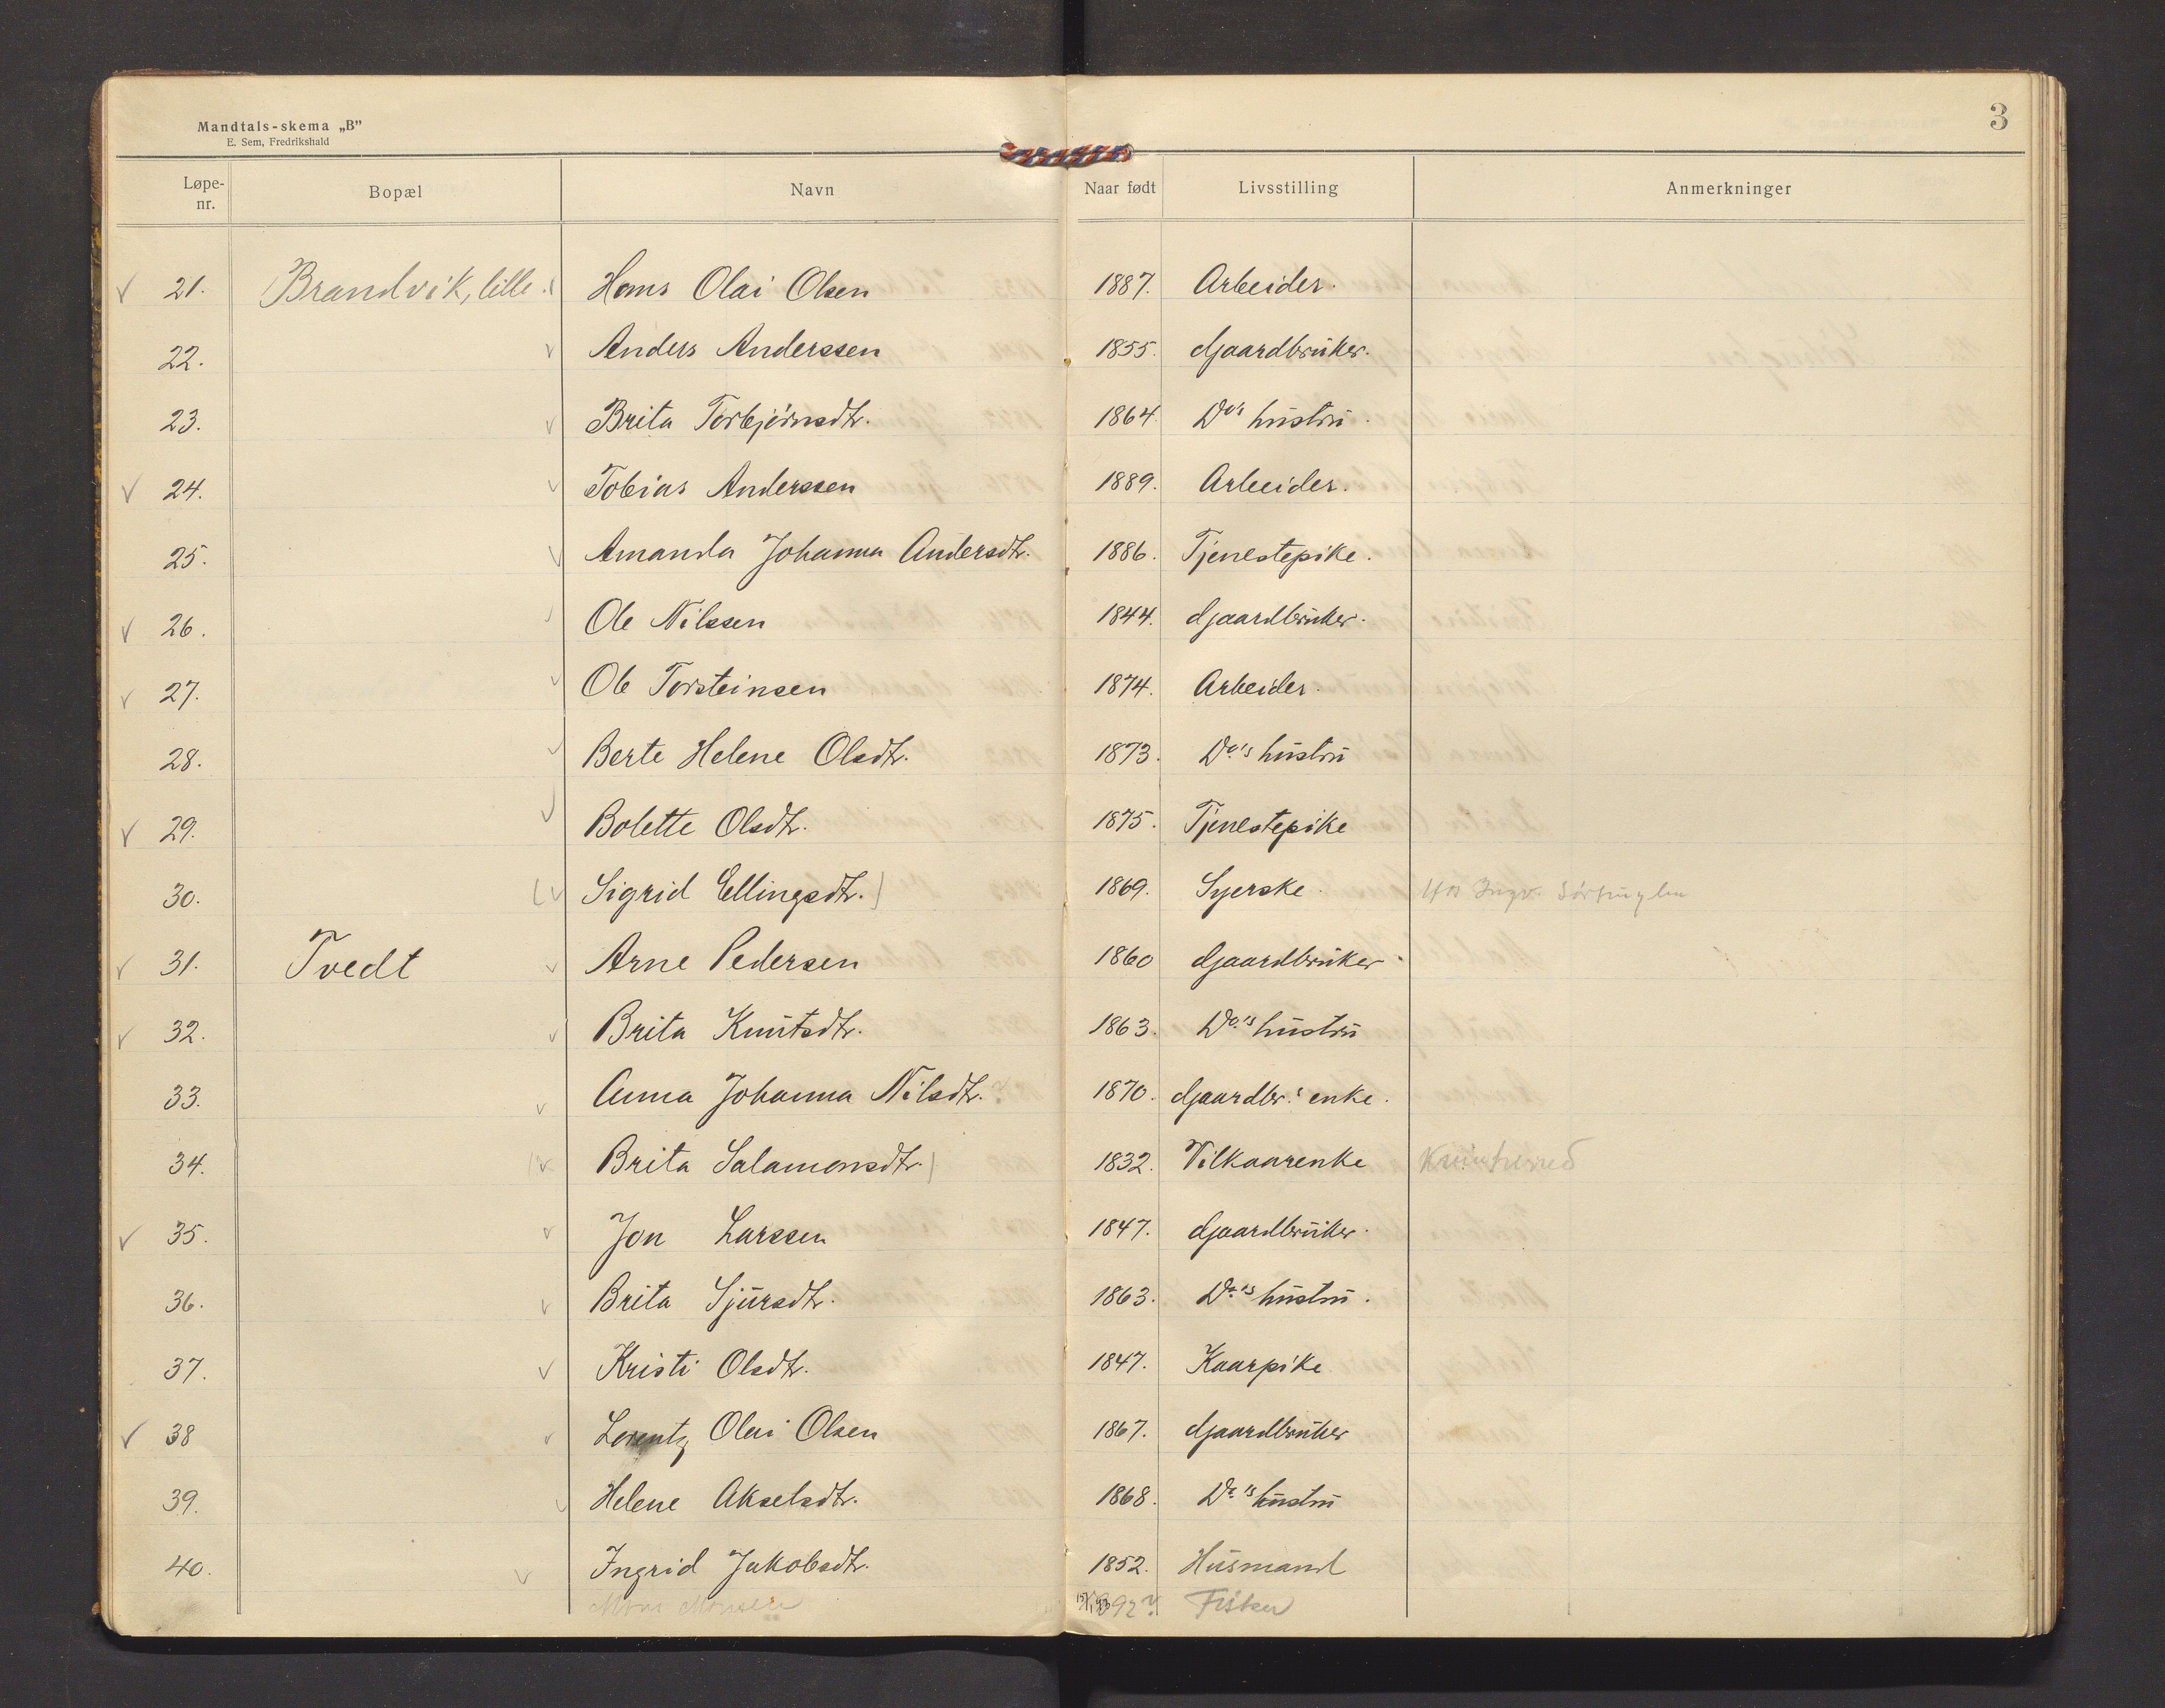 Mandtals-skema „B”
E. Sem, Fredrikshald
3
Løpe-nr. Bopæl Navn Naar født Livsstilling Anmerkninger
21. Brandvik, lille. Hans Olai Olsen 1887. Arbeider.
22. Anders Anderssen 1855. Gaardbruker.
23. Brita Torbjørnsdtr. 1864. Do's hustru.
24. Tobias Anderssen 1889. Arbeider.
25. Amanda Johanna Andersdtr. 1886. Tjenestepike.
26. Ole Nilssen 1844. Gaardbruker.
27. Ole Torsteinsen 1874. Arbeider.
28. Berte Helene Olsdtr. 1873. Do's hustru
29. Bolette Olsdtr. 1875. Tjenestepike
30. (Sigrid Ellingsdtr.) 1869. Syerske. Hos Ingv.
31. Tvedt Arne Pedersen 1860 Gaardbruker.
32. Brita Knutsdtr. 1863. Do's hustru
33. Anna Johanna Nilsdtr. 1870. Gaardbr.' enke.
34. (Brita Salamonsdtr.) 1832. Vilkaarenke
35. Jon Larssen 1847. Gaardbruker.
36. Brita Sjursdtr. 1863. Do's hustru.
37. Kristi Olsdtr. 1847. Kaarpike
38 Lorentz Olai Olsen 1867. Gaardbruker
39. Helene Akselsdtr. 1868. Do's hustru
40. Ingrid Jakobsdtr. 1852. Husmand
Mons Monsen 1892? Fisker